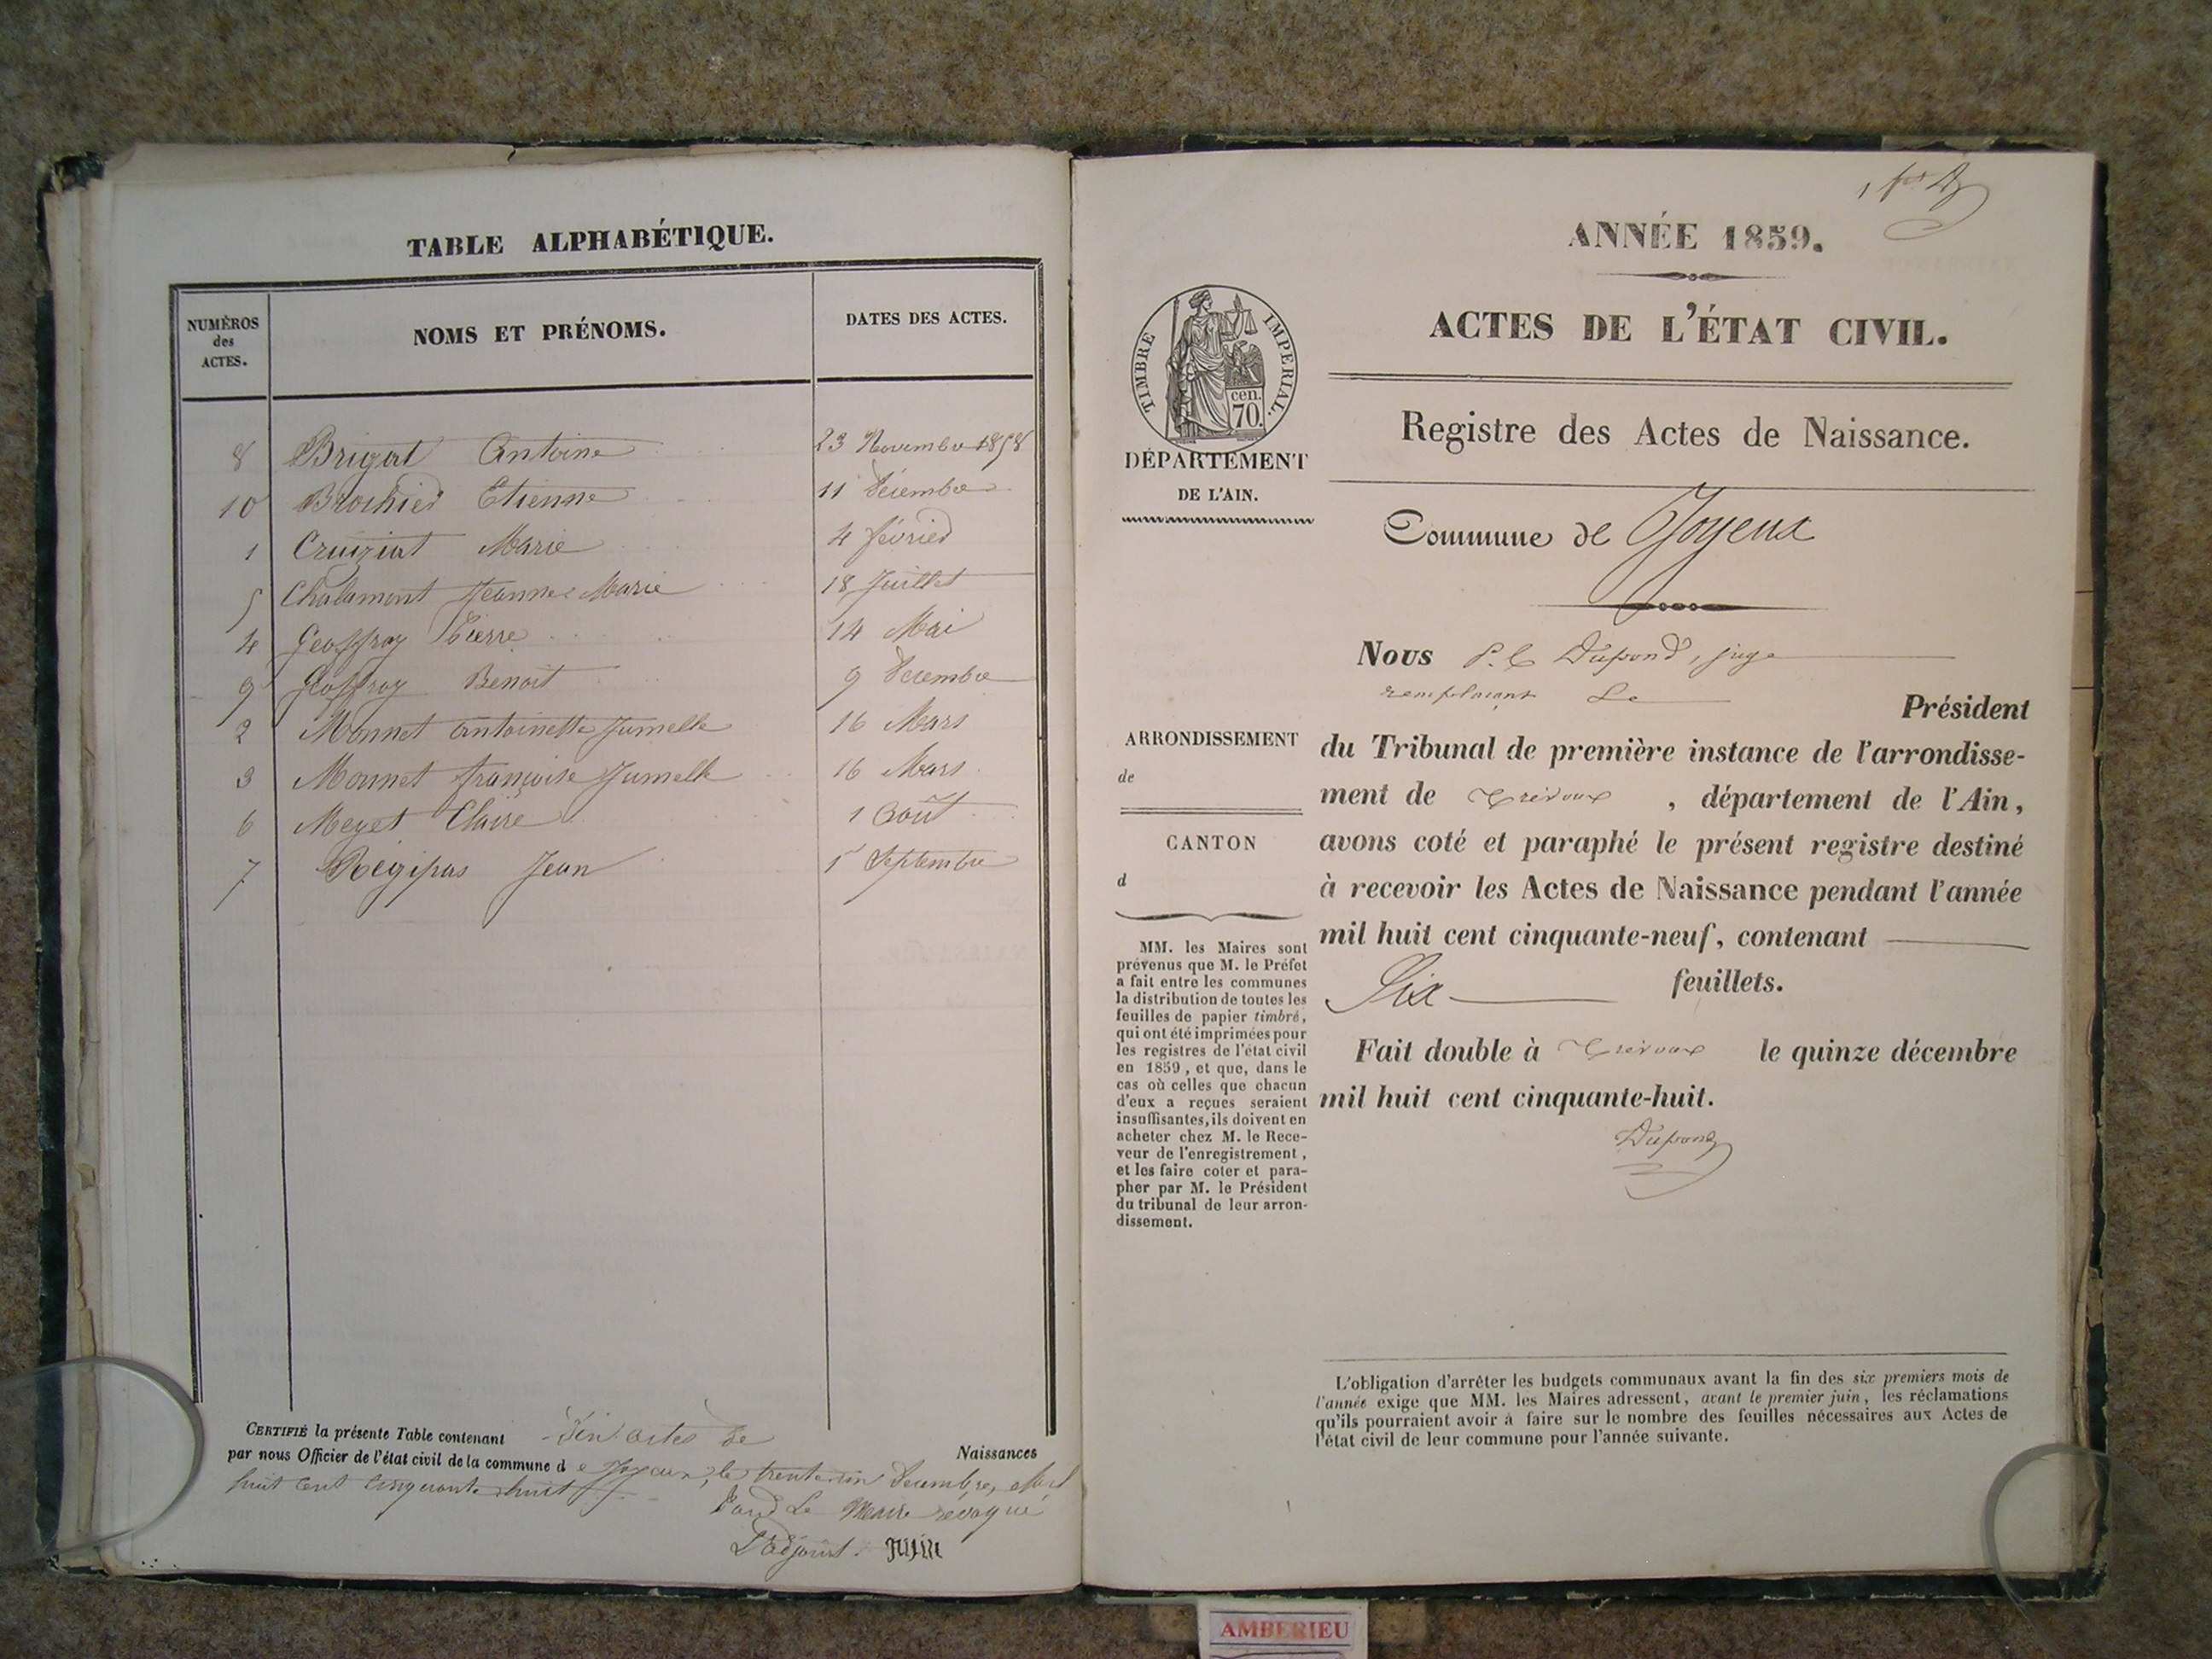 TABLE ALPHABÉTIQUE.
NUMÉROS des ACTES.
NOMS ET PRÉNOMS.
DATES DES ACTES.
8 Brigat Antoine 23 Novembre 1858
10 Brochier Etienne 11 Décembre
1 Cruiziat Marie 4 février
5 Chalamont Jeanne Marie 18 Juillet
4 Geoffray Pierre 14 Mai
9 Geoffray Benoit 9 Décembre
2 Monnet Antoinette Jumelle 16 Mars
3 Monnet françoise Jumelle 16 Mars
6 Meyet Claire 1 Août
7 Régipas Jean 1er Septembre
CERTIFIÉ la présente Table contenant Dix actes de
Naissances
par nous Officier de l'état civil de la commune de Joyeux, le trente un Décembre, Mil
huit cent cinquante huit
Le Maire révoqué
L'adjoint
1er
ANNÉE 1859.
ACTES DE L'ÉTAT CIVIL.
Registre des Actes de Naissance.
TIMBRE IMPERIAL.
cen.
70.
DÉPARTEMENT
DE L'AIN.
Commune de Joyeux
Nous P. C Dupond, juge
remplaçant Le Président
du Tribunal de première instance de l'arrondisse-
ment de Trévoux, département de l'Ain,
avons coté et paraphé le présent registre destiné
à recevoir les Actes de Naissance pendant l'année
mil huit cent cinquante-neuf, contenant
Six feuillets.
Fait double à Trévoux le quinze décembre
mil huit cent cinquante-huit.
Dupond
ARRONDISSEMENT
de
CANTON
d
MM. les Maires sont
prévenus que M. le Préfet
a fait entre les communes
la distribution de toutes les
feuilles de papier timbré,
qui ont été imprimées pour
les registres de l'état civil
en 1859, et que, dans le
cas où celles que chacun
d'eux a reçues seraient
insuffisantes, ils doivent en
acheter chez M. le Rece-
veur de l'enregistrement,
et les faire coter et para-
pher par M. le Président
du tribunal de leur arron-
dissement.
L'obligation d'arrêter les budgets communaux avant la fin des six premiers mois de
l'année exige que MM. les Maires adressent, avant le premier juin, les réclamations
qu'ils pourraient avoir à faire sur le nombre des feuilles nécessaires aux Actes de
l'état civil de leur commune pour l'année suivante.
AMBERIEU